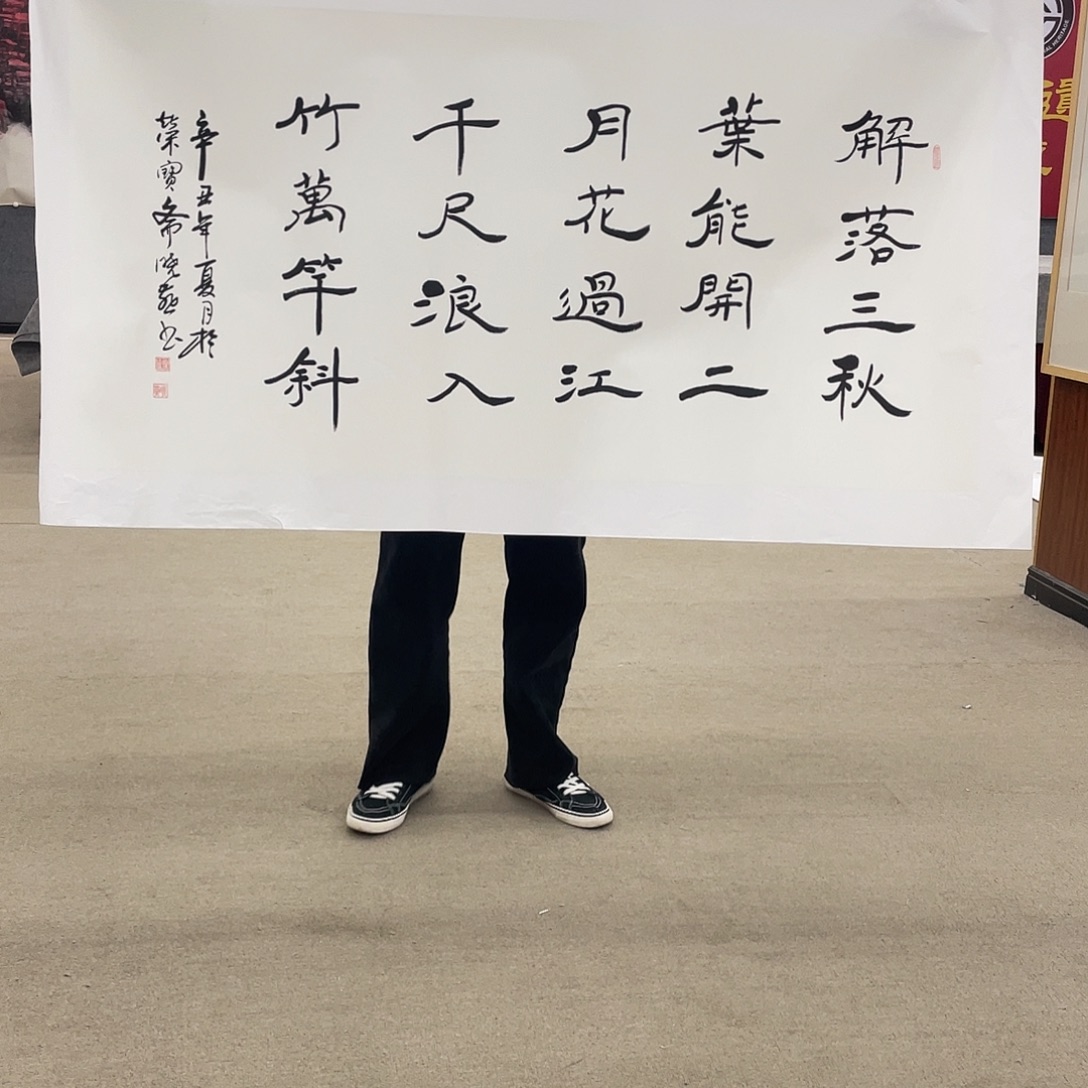 解落三秋
葉能開二
月花過江
千尺浪入
竹萬竿斜
辛丑年夏月於
榮寶斋曉燕书
遺